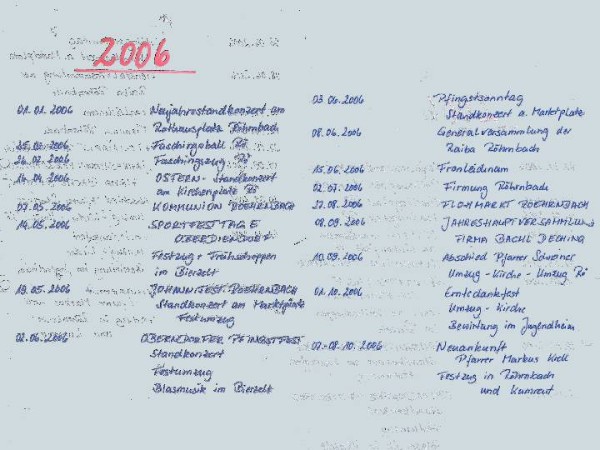 2006
01.01.2006 Neujahrsstandkonzert am
Rathausplatz Röhrnbach
25.02.2006 Faschingsball Rö
26.02.2006 Faschingszug Rö
16.04.2006 OSTERN - Standkonzert
am Kirchenplatz Rö
07.05.2006 KOMMUNION ROEHRNBACH
14.05.2006 SPORTFESTTAGE
OBERDIENDORF
Festzug + Frühschoppen
im Bierzelt
19.05.2006 JOHANNIFEST ROEHRNBACH
Standkonzert am Marktplatz
Festumzug
02.06.2006 OBERNDORFER PFINGSTFEST
Standkonzert
Festumzug
Blasmusik im Bierzelt
03.06.2006 Pfingstsonntag
Standkonzert a. Marktplatz
08.06.2006 Generalversammlung der
Raiba Röhrnbach
15.06.2006 Fronleichnam
02.07.2006 Firmung Röhrnbach
27.08.2006 FLOHMARKT ROEHRNBACH
08.09.2006 JAHRESHAUPTVERSAMMLUNG
FIRMA BACHL DECHING
10.09.2006 Abschied Pfarrer
Umzug - Kirche - Umzug Rö
01.10.2006 Erntedankfest
Umzug - Kirche
Bewirtung im Jugendheim
07.-08.10.2006 Neuankunft
Pfarrer Markus
Festzug in Röhrnbach
und Kumreut